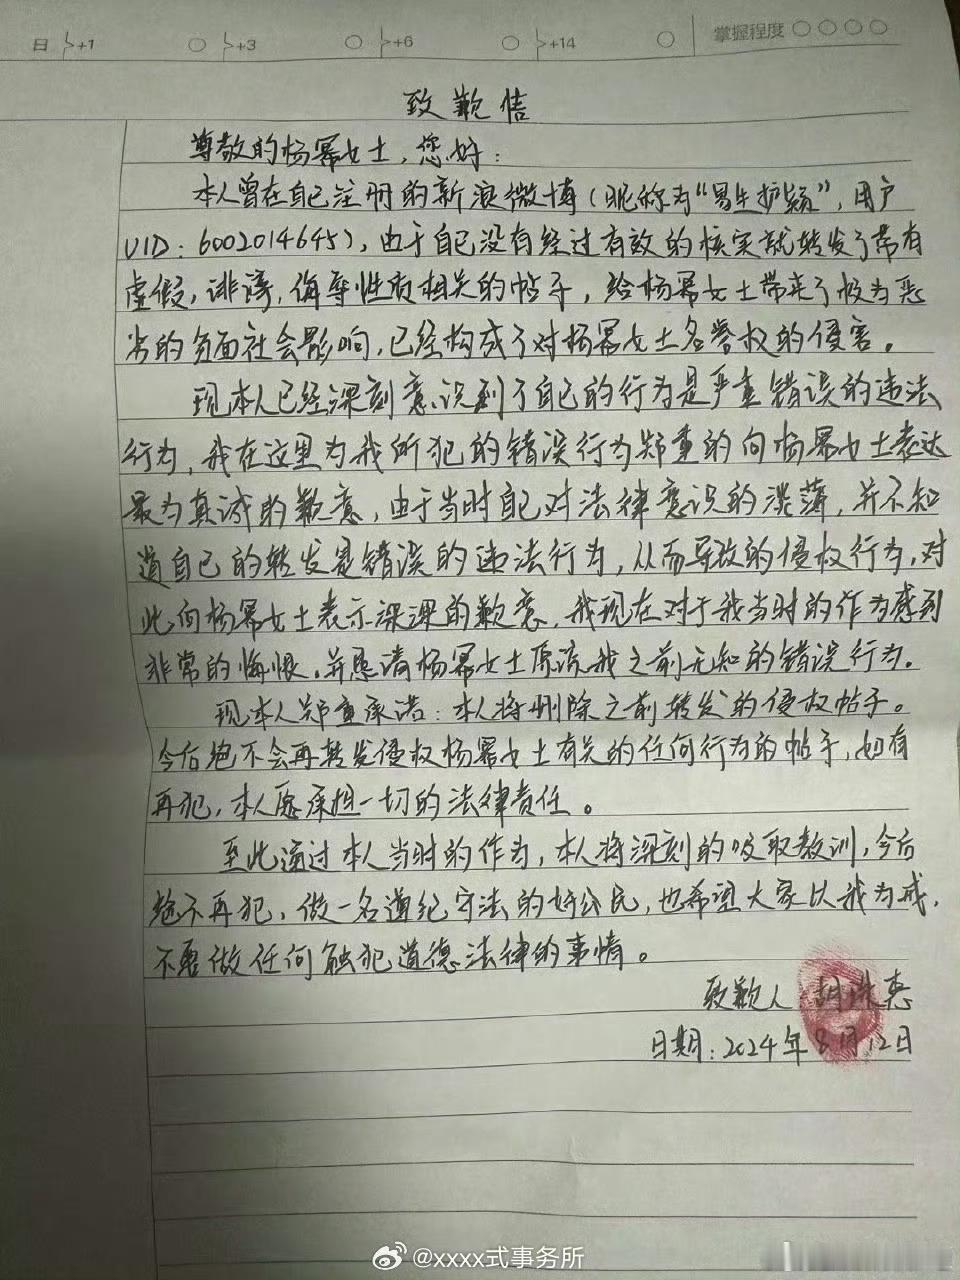 日 +1 +3 +6 +14 掌握程度
致歉信
尊敬的杨幂女士，您好：
本人曾在自己注册的新浪微博（昵称为“易生护颖”，用户
UID：6002014645），由于自己没有经过有效的核实就转发了带有
虚假，诽谤，侮辱性质相关的帖子，给杨幂女士带来了极为恶
劣的负面社会影响，已经构成了对杨幂女士名誉权的侵害。
现本人已经深刻意识到了自己的行为是严重错误的违法
行为，我在这里为我所犯的错误行为郑重的向杨幂女士表达
最为真诚的歉意，由于当时自己对法律意识的淡薄，并不知
道自己的转发是错误的违法行为，从而导致的侵权行为，对
此向杨幂女士表示深深的歉意，我现在对于我当时的作为感到
非常的悔恨，并恳请杨幂女士原谅我之前无知的错误行为。
现本人郑重承诺：本人将删除之前转发的侵权帖子。
今后绝不会再转发侵权杨幂女士有关的任何行为的帖子，如有
再犯，本人愿承担一切的法律责任。
至此通过本人当时的作为，本人将深刻的吸取教训，今后
绝不再犯，做一名遵纪守法的好公民，也希望大家以我为戒，
不要做任何触犯道德法律的事情。
致歉人 胡 惠
日期：2024年8月12日
@xxxx式事务所